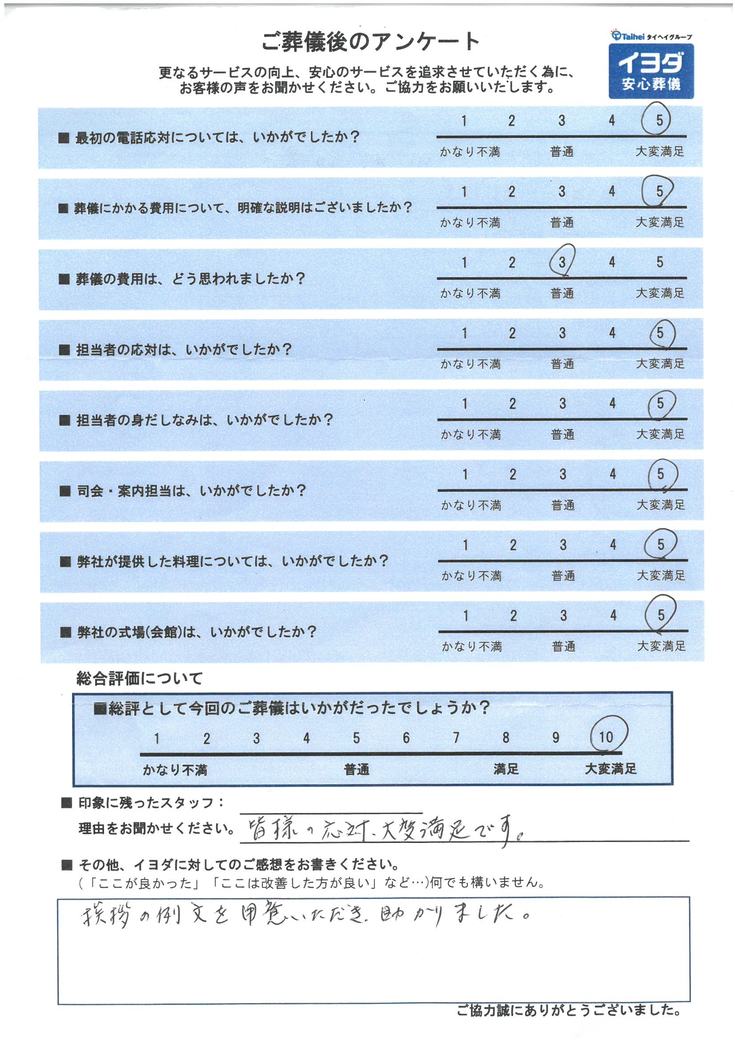 ご葬儀後のアンケート
Taihei タイヘイグループ
イヨダ
安心葬儀
更なるサービスの向上、安心のサービスを追求させていただく為に、
お客様の声をお聞かせください。ご協力をお願いいたします。
■ 最初の電話応対については、いかがでしたか?
1 2 3 4 5
かなり不満 普通 大変満足
■ 葬儀にかかる費用について、明確な説明はございましたか?
1 2 3 4 5
かなり不満 普通 大変満足
■ 葬儀の費用は、どう思われましたか?
1 2 3 4 5
かなり不満 普通 大変満足
■ 担当者の応対は、いかがでしたか?
1 2 3 4 5
かなり不満 普通 大変満足
■ 担当者の身だしなみは、いかがでしたか?
1 2 3 4 5
かなり不満 普通 大変満足
■ 司会・案内担当は、いかがでしたか?
1 2 3 4 5
かなり不満 普通 大変満足
■ 弊社が提供した料理については、いかがでしたか?
1 2 3 4 5
かなり不満 普通 大変満足
■ 弊社の式場(会館)は、いかがでしたか?
1 2 3 4 5
かなり不満 普通 大変満足
総合評価について
■総評として今回のご葬儀はいかがだったでしょうか?
1 2 3 4 5 6 7 8 9 10
かなり不満 普通 満足 大変満足
■ 印象に残ったスタッフ:
理由をお聞かせください。 皆様の応対、大変満足です。
■ その他、イヨダに対してのご感想をお書きください。
(「ここが良かった」「ここは改善した方が良い」など…)何でも構いません。
挨拶の例文を用意いただき、助かりました。
ご協力誠にありがとうございました。